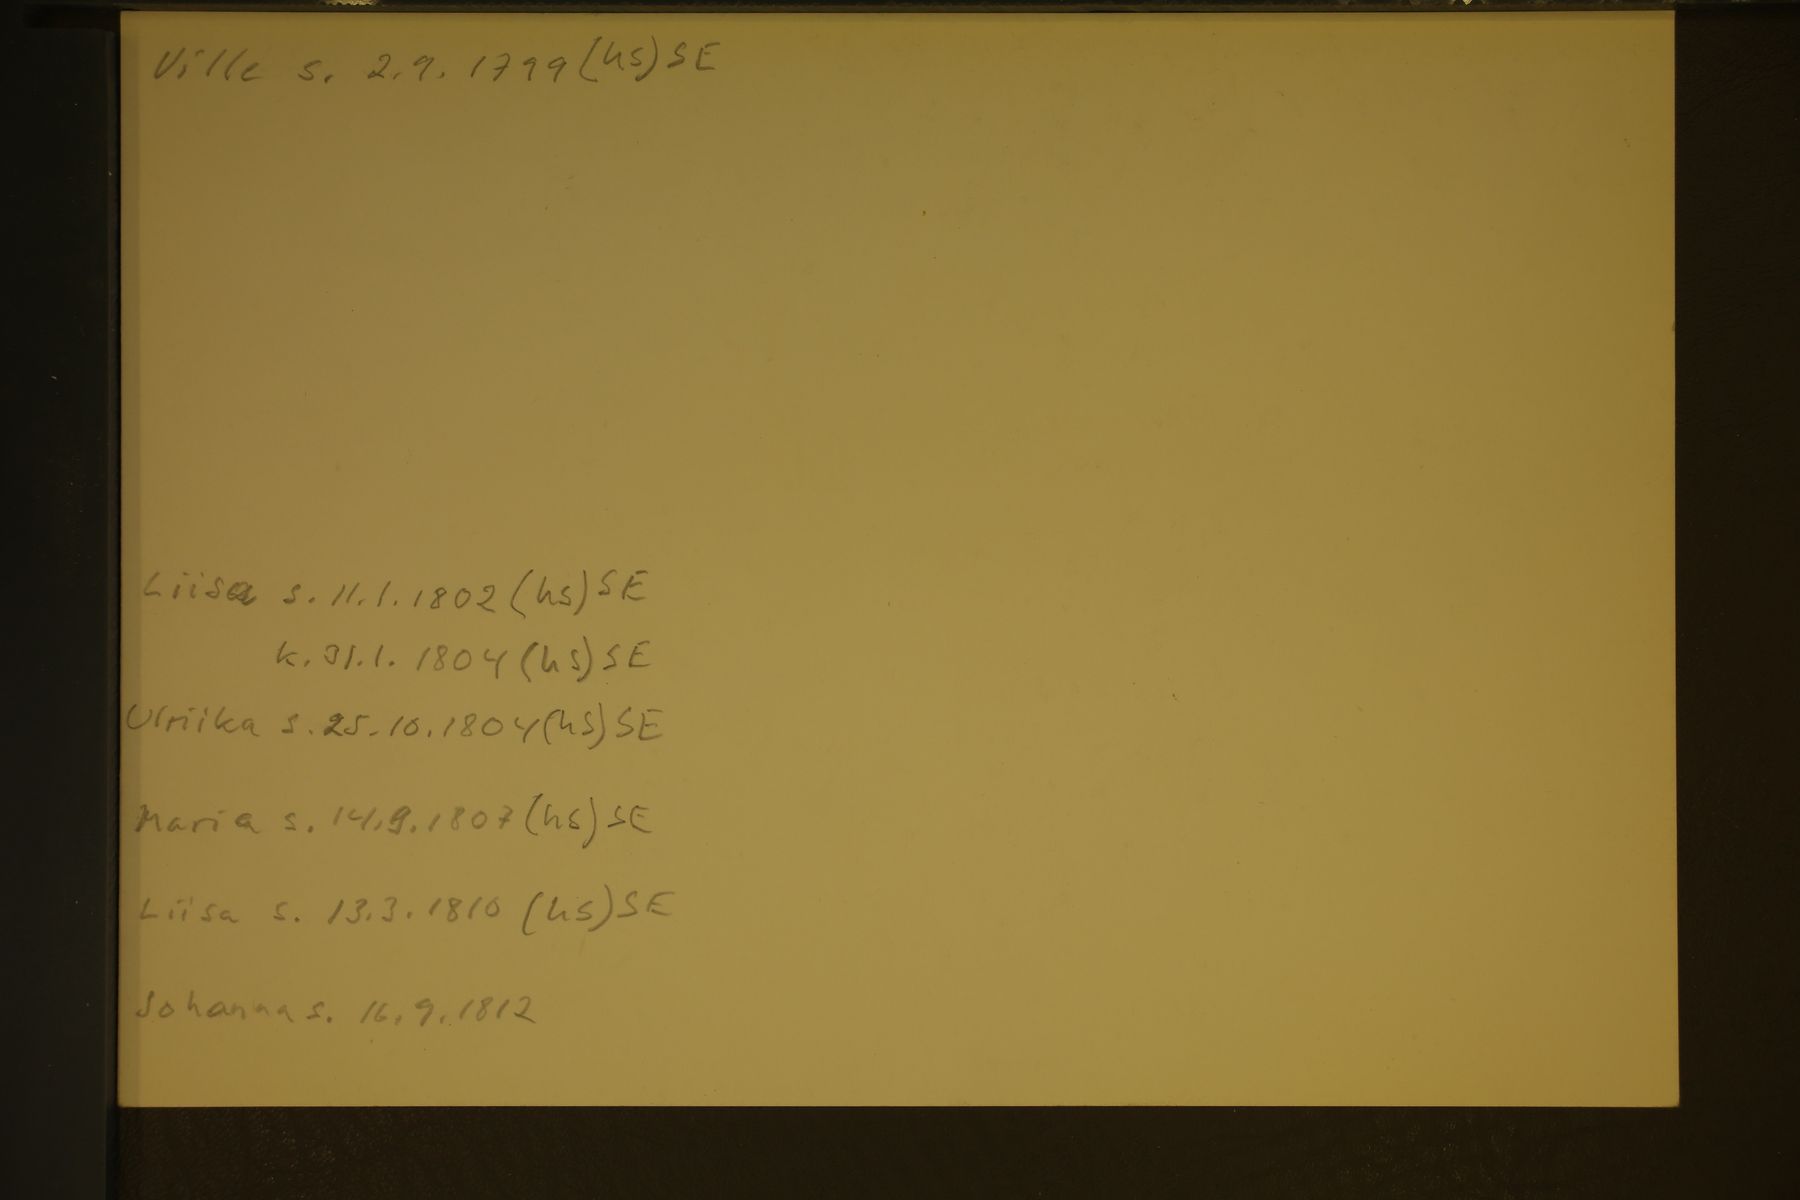 Ville s. 2.9. 1799 (hs) SE
Liisa s. 11.1.1802 (hs) SE
k. 31.1. 1804 (hs) SE
Ulriika s. 25.10.1804 (hs) SE
Maria s. 14.9.1807 (hs) SE
Liisa s. 13.3.1810 (hs) SE
Johanna s. 16.9.1812